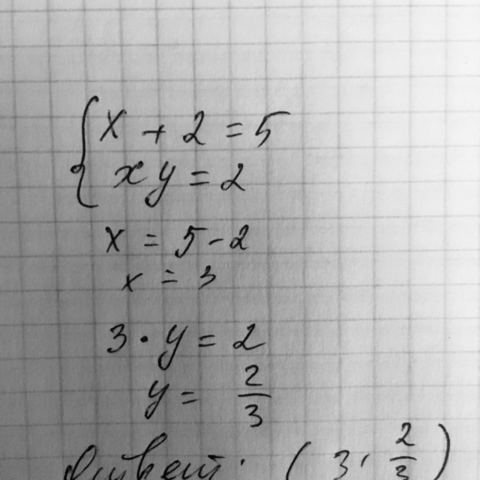 { x + 2 = 5
xy = 2
x = 5 - 2
x = 3
3 · y = 2
y = 2/3
Ответ: (3; 2/3)